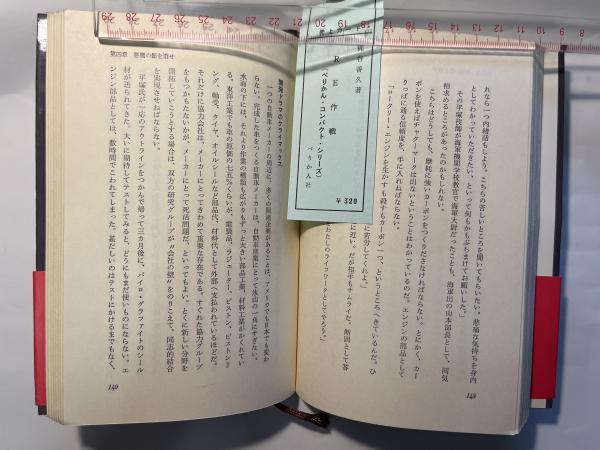 れなら一つ内緒話もしよう。こちらの苦しいところを聞いてもらいたい。悲痛な気持ちを身内
としてわかっていただきたい、といって何もかもぶちまけてお願いした。」
その平塚技師が海軍機関学校教官で海軍大尉だったことも、海軍出の山本部長として、同気
相求めるところがあったのかもしれない。
こちらはどうしても、摩耗に強いカーボンをつくりださなければならない。とにかく、カー
ボンを使えばチャターマークは出ないということはわかっているのだ。エンジンの部品として
りっぱに通る信頼度を、手に入れねばならない。
「ロータリー・エンジンを生かすも殺すもカーボン一つ、というところへきているんだ。ひ
に苦労してくれよ。」
に近い。だが相手もサムライだ。断固として答
わたしのライフワークとしてやろう。」
148
梶谷善久著
RE作戦
(ぺりかん・コンパクト・シリーズ)
ぺりかん社
￥320
第四章 悪魔の爪を消せ
開発ドラマのクライマックス
一つの自動車メーカーの周辺に、多くの関連企業があることは、アメリカでも日本でも変わ
らない。完成した車をつくる自動車メーカーは、自動車産業にとって氷山の一角にすぎない。
水面の下には、それより作業の種類も広がりもずっと大きい部品工業、材料工業がかくれてい
る。東洋工業でも車の原価の七五%くらいが、電装品、ラジエーター、ピストン、ピストンリ
ング、軸受、タイヤ、オイルシールなど部品代、材料代として外部へ支払われているほどだ。
それだけに協力会社は、メーカーにとってきわめて重要な存在である。すぐれた協力グループ
をもつかもたないかが、メーカーにとって死活問題だ、といってもよい。とくに新しい分野を
開拓していこうとする場合は、双方の研究グループが“会社の壁”をのりこえて、同志的結合
を実現させねばならない。
平塚氏が一応のアウトラインをつかんで帰って三カ月後に、パイロ・グラファイトのシール
材が送られてきた。大いに期待してテストしてみると、どうにもまだ使いものにならない。エ
ンジン部品としては、数時間でこわれてしまった。甚だしいのはテストにかけるまでもなく、
149